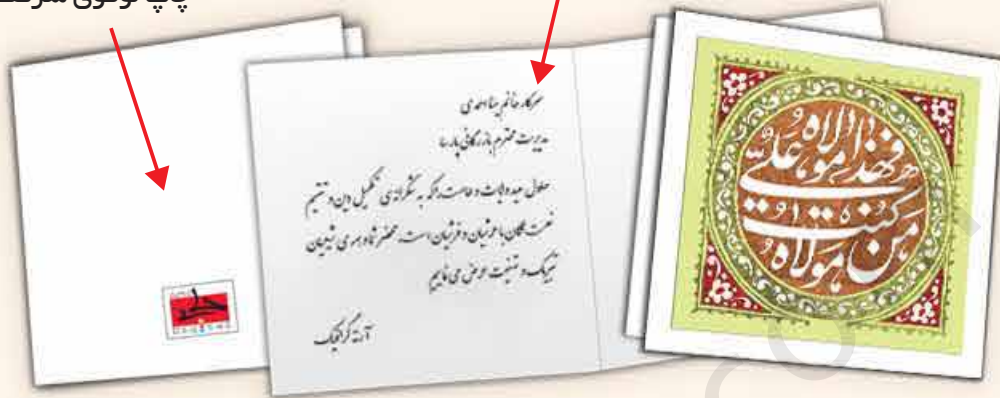 چاپ لوگوی
سرکار خانم مینا احمدی
مدیریت محترم بازرگانی پارسا
حلول عید ولایت و امامت را که به شکرانه‌ی تکمیل دین و تتمیم
نعمت همگان با عرشیان و فرشیان است، محضر شما و همه‌ی شیعیان
تبریک و تهنیت عرض می نماییم
آرتا گرافیک
من کنت مولاه فهذا علی مولاه